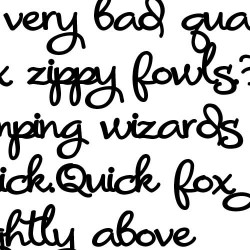 very bad qua
x zippy fowls?
mping wizards
ick.Quick fox
ghtly above